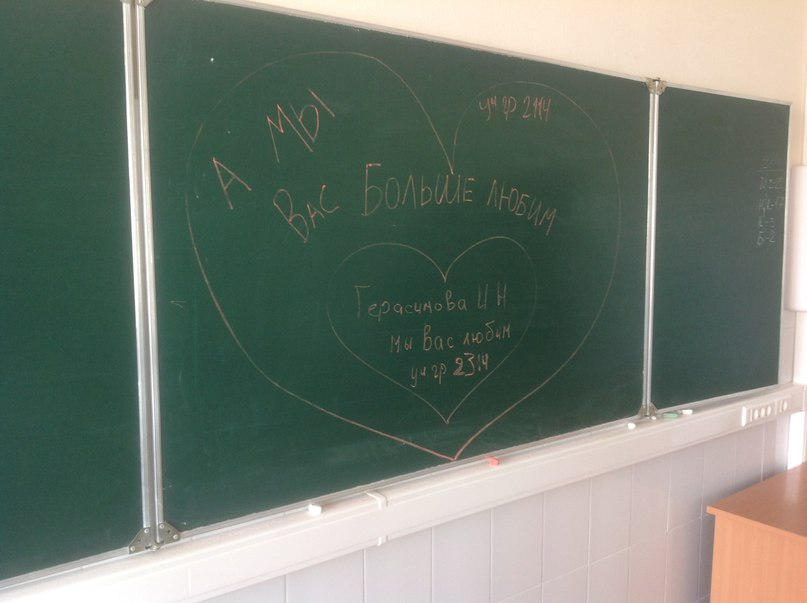 А МЫ
уч гр 2114
Вас БОЛЬШЕ ЛЮБИМ
Герасимова И Н
мы Вас любим
уч гр 2314